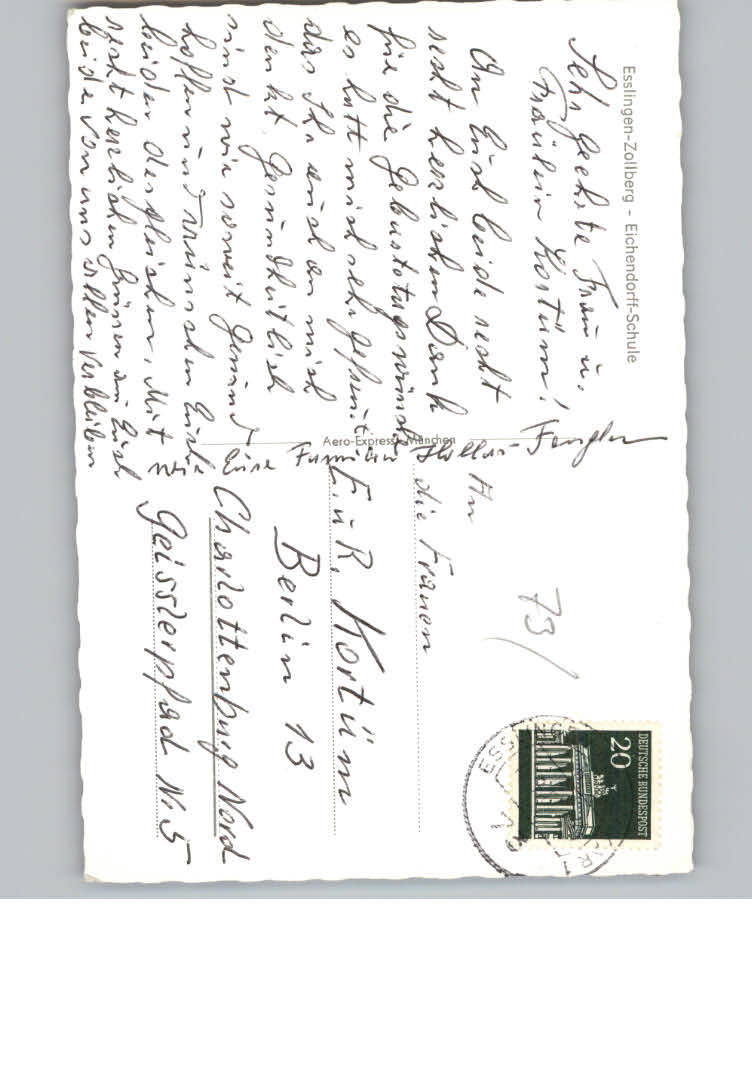 Esslingen-Zollberg - Eichendorff-Schule
Sehr geehrte Frau u.
Fräulein Kortüm!
An Euch beide recht
recht herzlichen Dank
für die Geburtstagswünsche
es hatt mich sehr gefreut
das Ihr auch an mich
denkt. Gesundheitlich
sind wir soweit Gesund
hoffen und wünschen Euch
beiden desgleichen. Mit
recht herzlichen Grüssen an Euch
beide von uns allen verbleiben
wir Eure Familie
Aero-Express München
An
die Frauen
E. u. R. Kortüm
Berlin 13
Charlottenburg Nord
Geisslerpfad Nr. 5
73/
DEUTSCHE BUNDESPOST
20
ESSLINGEN